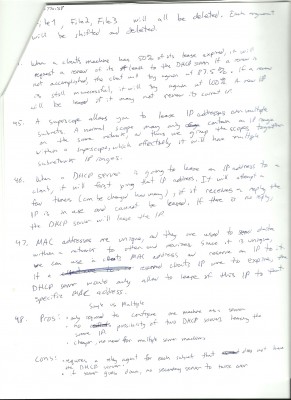 File1, File2, File3 will all be deleted. Each argument
will be shifted and deleted.
When a clients machines has 50% of its lease expired, it will
request a renew of its lease to the DHCP server. If a renew is
not accomplished, the client will try again at 87.5%. If a renew
is still unsuccessful, it will try again at 100%. A new IP
will be leased if it may not renew its current IP.
45. A superscope allows you to lease IP addresses over multiple
subnets. A normal scope may only contain an IP range
on the same network
within a superscope, which effectively it will have multiple
subnets IP ranges.
46. When a DHCP server is going to lease an IP address to a
client, it will first ping that IP address. It will attempt a
few times (can be changed how many), if it receives a reply the
IP is in use and cannot be leased. If there is no reply,
the DHCP server will lease the IP.
47. MAC addresses are unique, and they are used to data
within a network to other end machines. Since it is unique,
we can use a clients MAC address and reserve an IP to it.
If a clients IP were to expire, the
DHCP server would only allow to lease of this IP to that
specific MAC address.
Single vs Multiple
48. Pros: - only required to configure one machine as a server
- no possibility of two DHCP servers leasing the
same IP.
- cheaper, no need for multiple server machines.
Cons: - requires a relay agent for each subnet that does not have
a DHCP server.
- if server goes down, no secondary server to take over